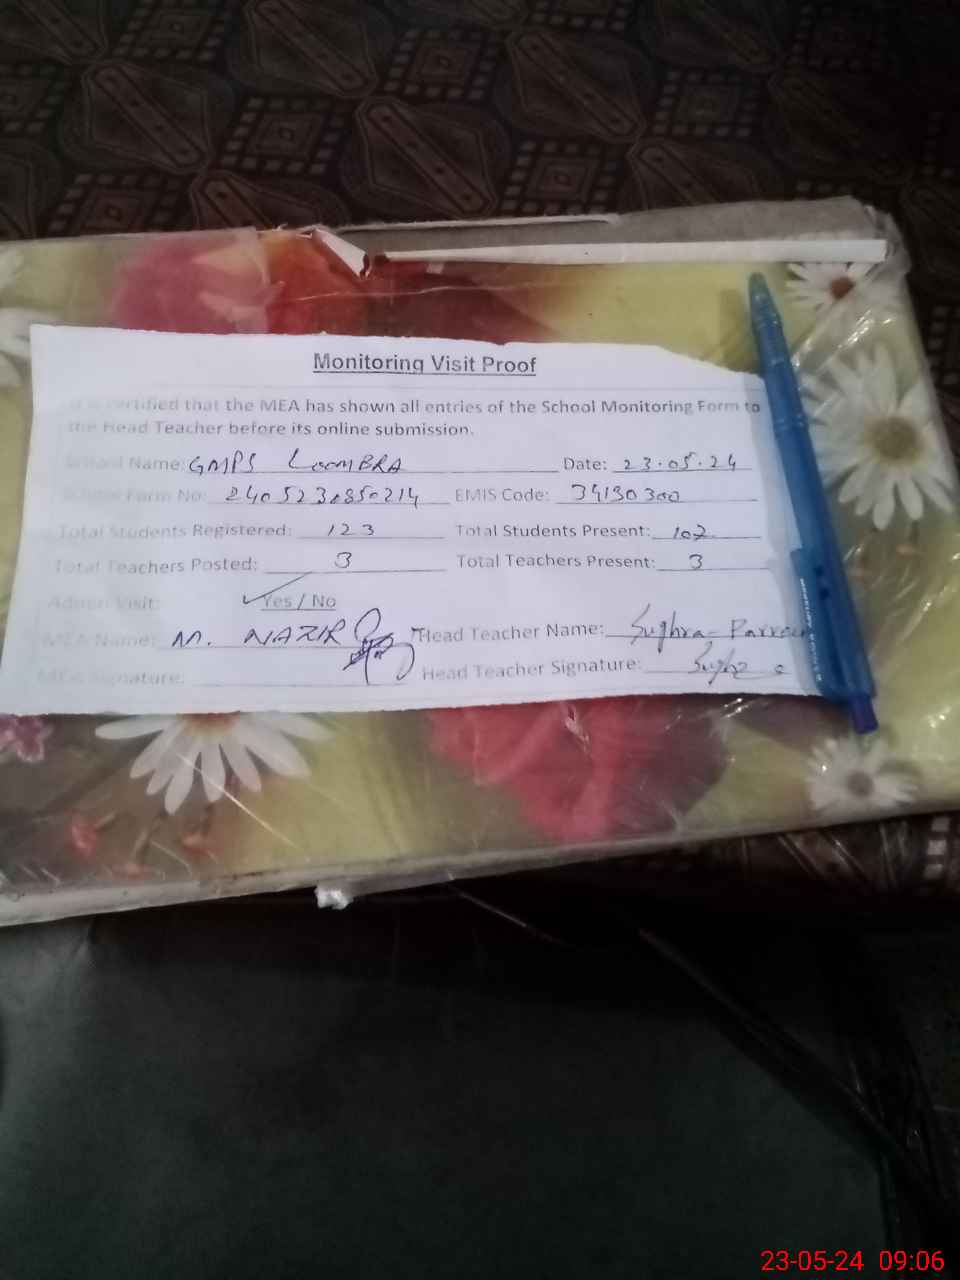 Monitoring Visit Proof
It is certified that the MEA has shown all entries of the School Monitoring Form to
the Head Teacher before its online submission.
School Name: GMPS LoomBRA Date: 23.05.24
Form No: 2405230850214 EMIS Code: 34130300
Total Students Registered: 123 Total Students Present: 102
Total Teachers Posted: 3 Total Teachers Present: 3
Admin Visit: Yes / No
MEA Name: M. NAZIR Head Teacher Name: Sughra
MEA Signature: Head Teacher Signature:
23-05-24 09:06